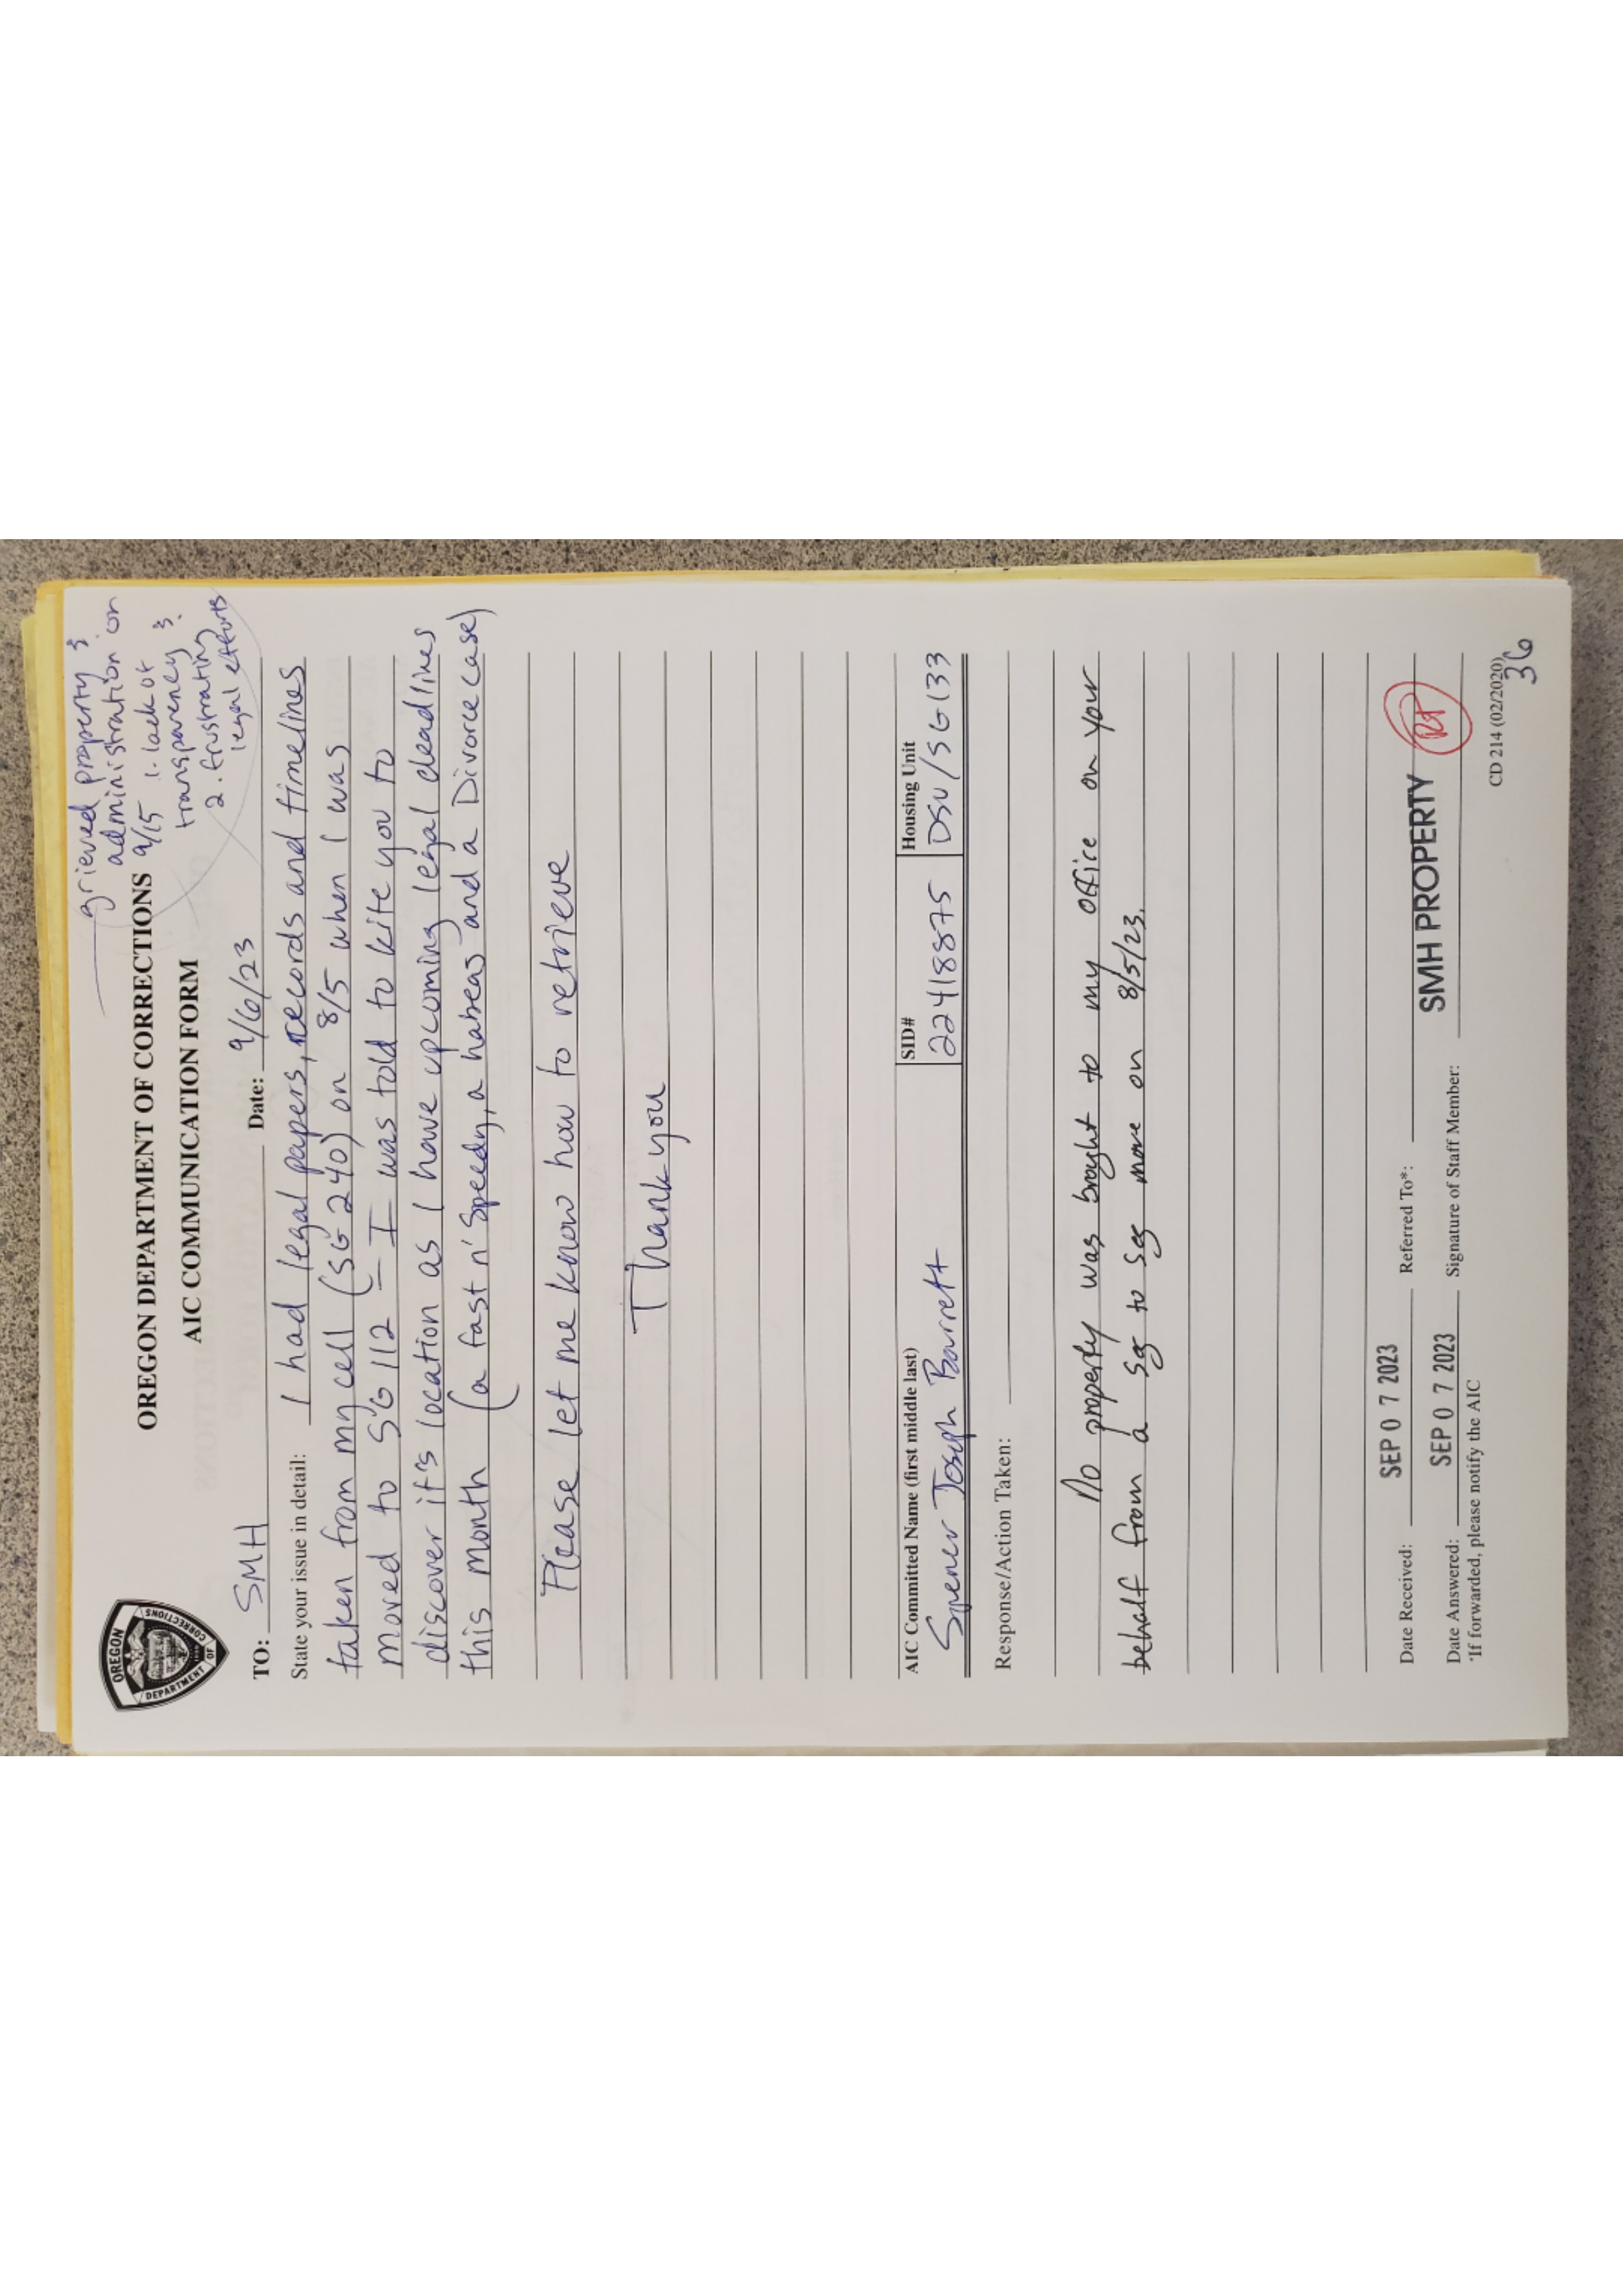 grieved property &
administration on
9/15 1. lack of
transparency &
2. frustrating
legal efforts
OREGON DEPARTMENT OF CORRECTIONS
AIC COMMUNICATION FORM
OREGON
DEPARTMENT OF
CORRECTIONS
TO: SMH Date: 9/6/23
State your issue in detail: I had legal papers, records and timelines
taken from my cell (SG 240) on 8/5 when I was
moved to SG 112 - I was told to kite you to
discover it's location as I have upcoming legal deadlines
this month (a fast n' Speedy, a habeas and a Divorce case)
Please let me know how to retrieve
Thank you
AIC Committed Name (first middle last) SID# Housing Unit
Spencer Joseph Barrett 22418875 DSU/SG133
Response/Action Taken:
No property was brought to my office on your
behalf from a Seg to Seg move on 8/5/23.
Date Received: SEP 0 7 2023 Referred To*:
Date Answered: SEP 0 7 2023 Signature of Staff Member: SMH PROPERTY
*If forwarded, please notify the AIC
CD 214 (02/2020)
36